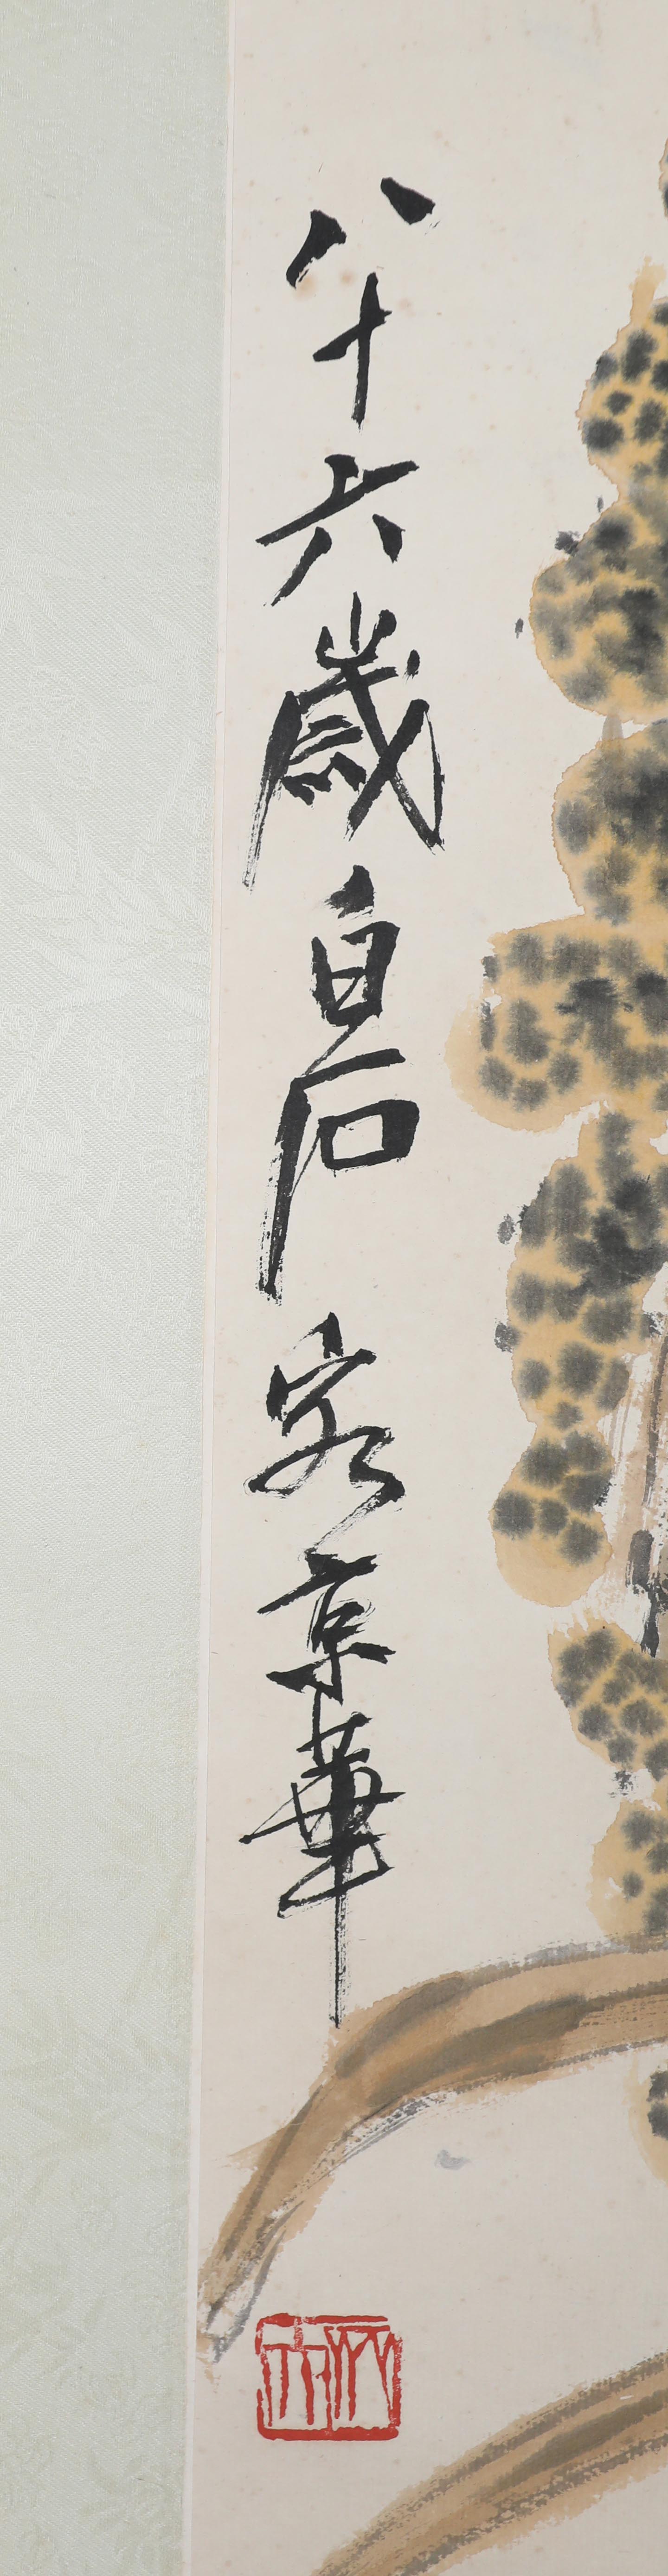 八十六歲白石客京華